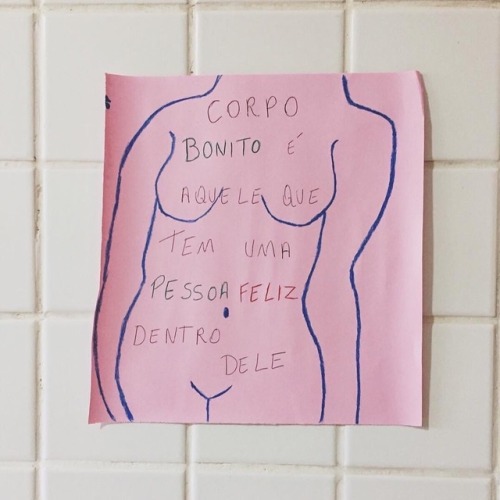 CORPO
BONITO É
AQUELE QUE
TEM UMA
PESSOA FELIZ
DENTRO
DELE